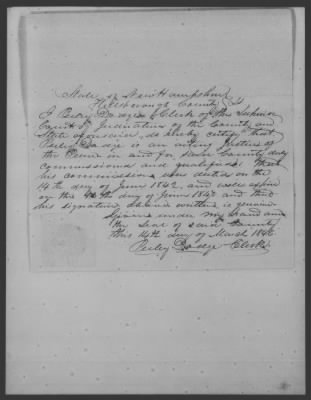 State of New Hampshire
Hillsborough County Ss
I Perley Dodge Clerk of the Superior
Court of Judicature of the County and
State aforesaid, do hereby certify that
Perley Dodge is an acting Justice of
the Peace in and for said County duly
commissioned and qualified that
his commission was dated on the
14th day of June 1842, and will expire
on the day of June 1847 and that
his signature above written is genuine
Given under my hand and
the Seal of said County
this 14th day of March
Perley Dodge Clerk